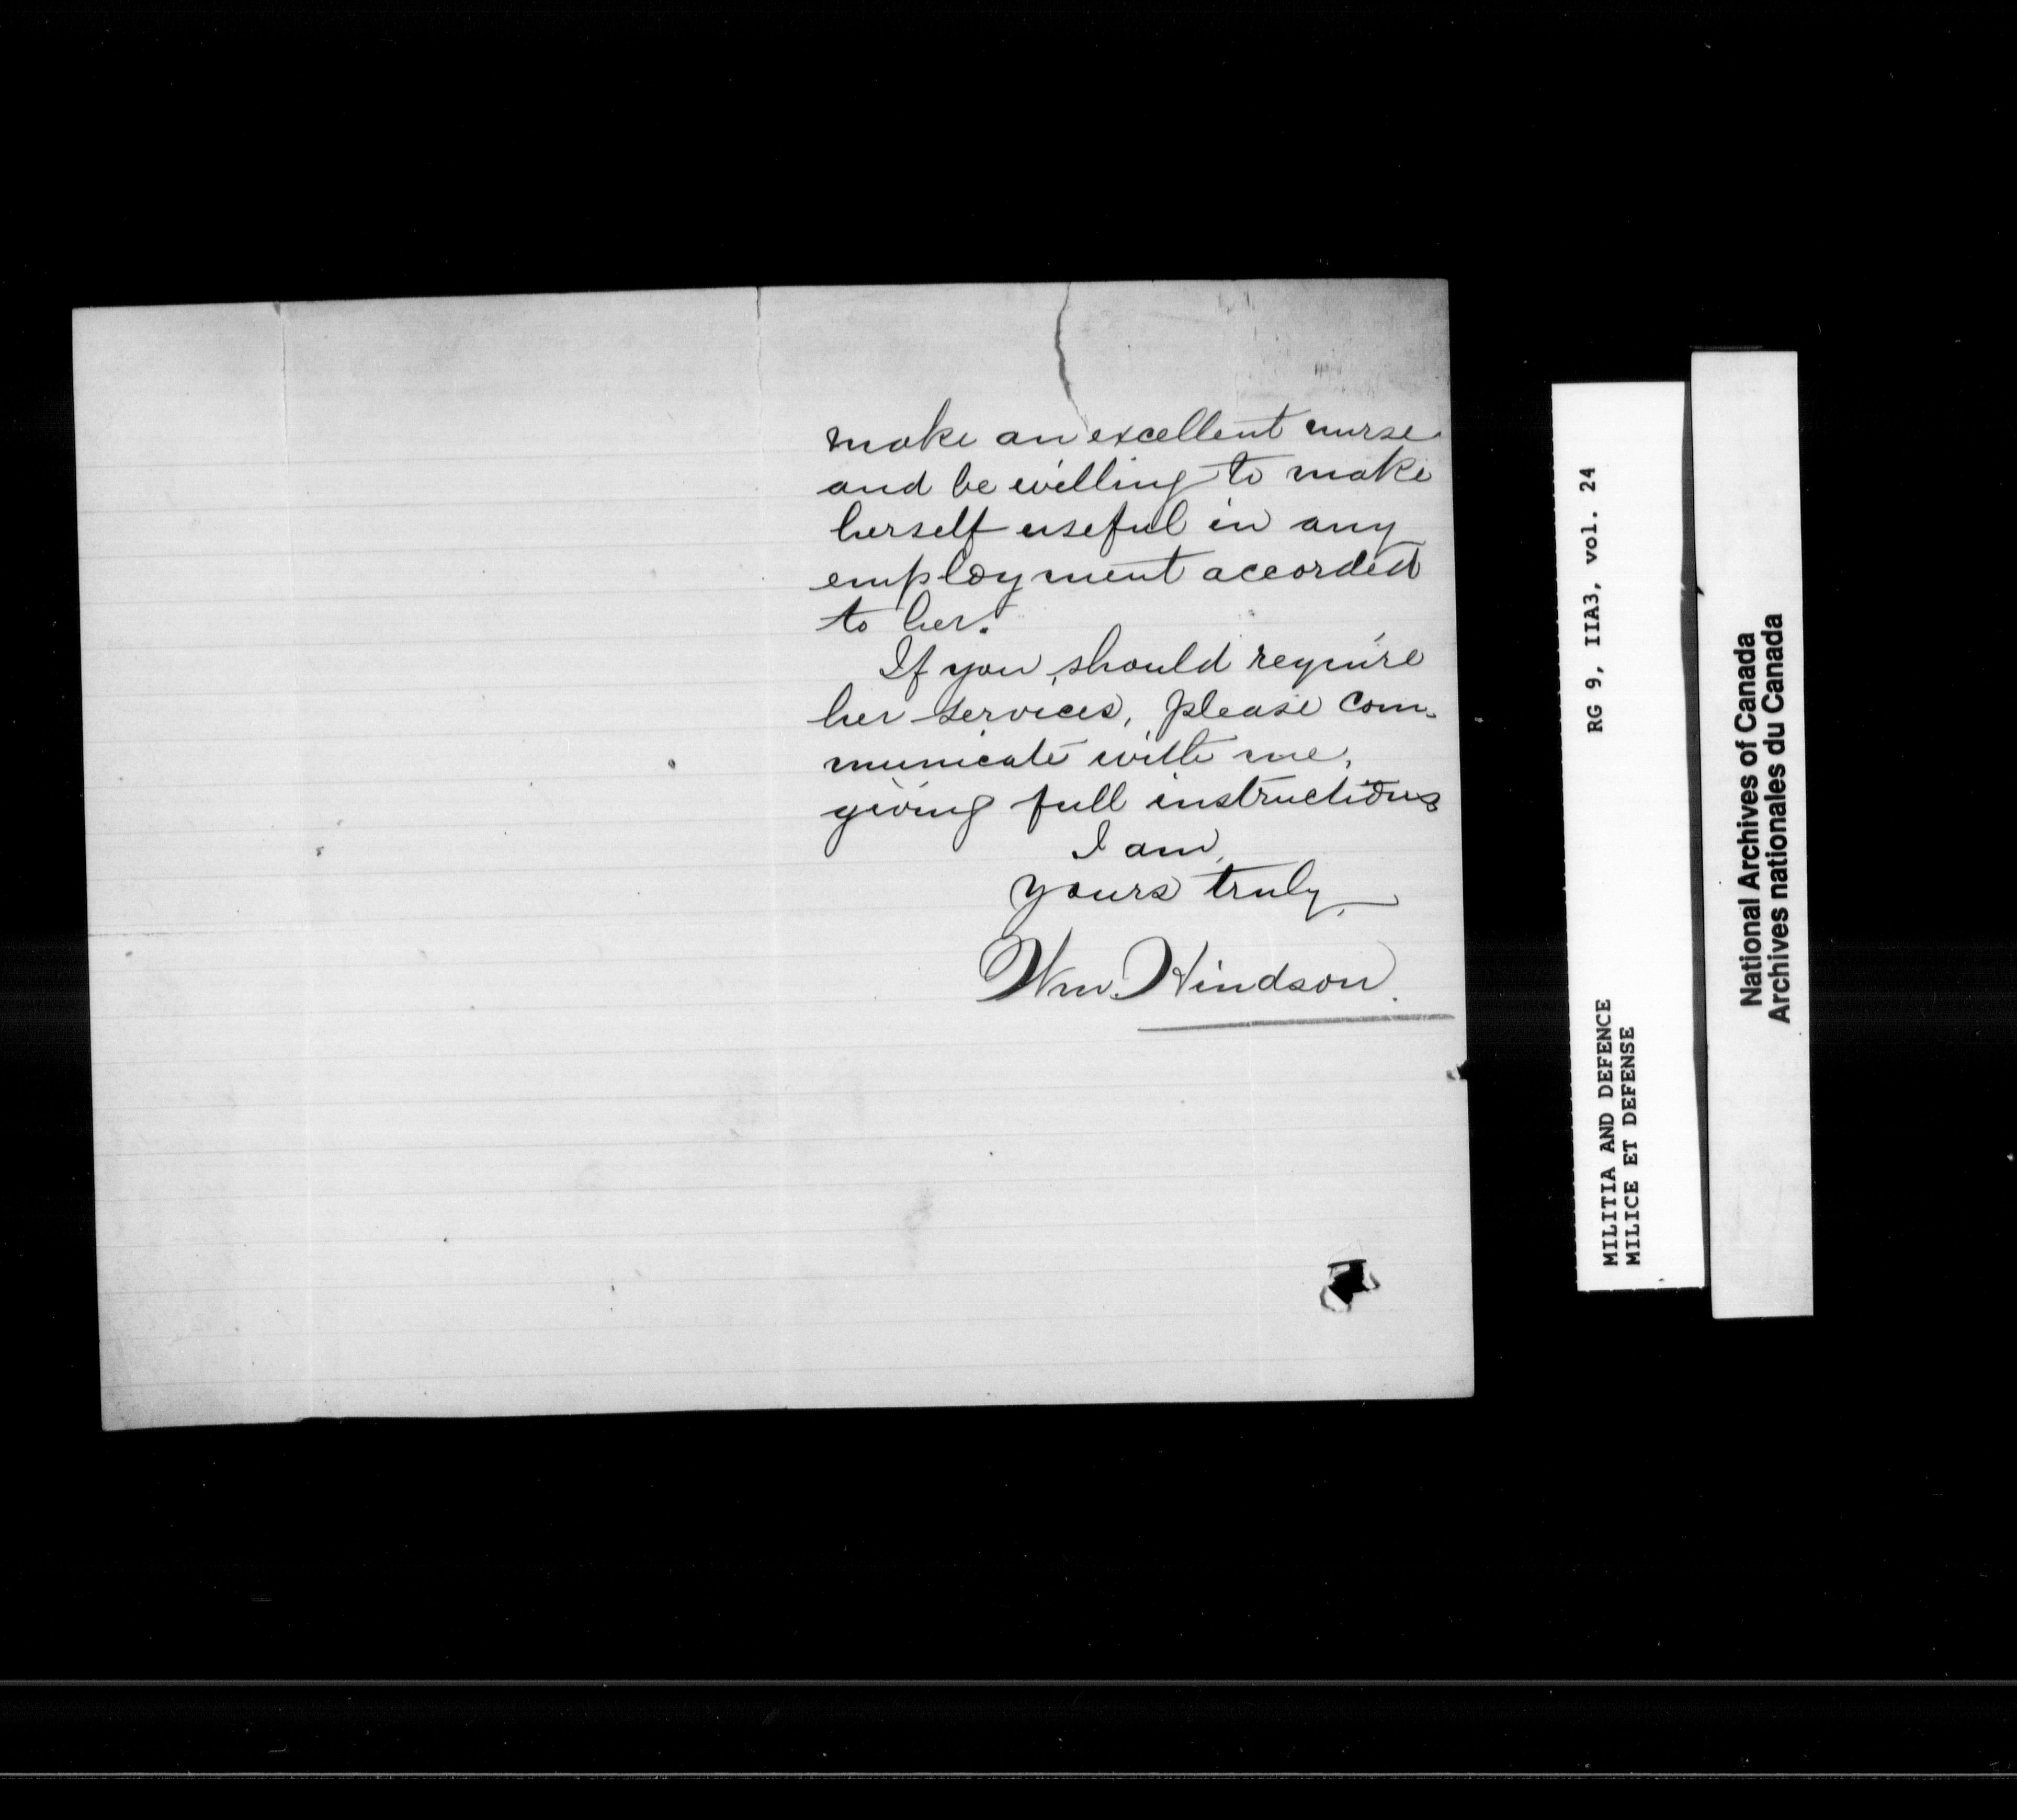 make an excellent nurse
and be willing to make
herself useful in any
employment accorded
to her.
If you should require
her services, please com-
municate with me,
giving full instructions
I am,
yours truly,
Wm. Hindson.
RG 9, IIA3, vol. 24
MILITIA AND DEFENCE
MILICE ET DEFENSE
National Archives of Canada
Archives nationales du Canada